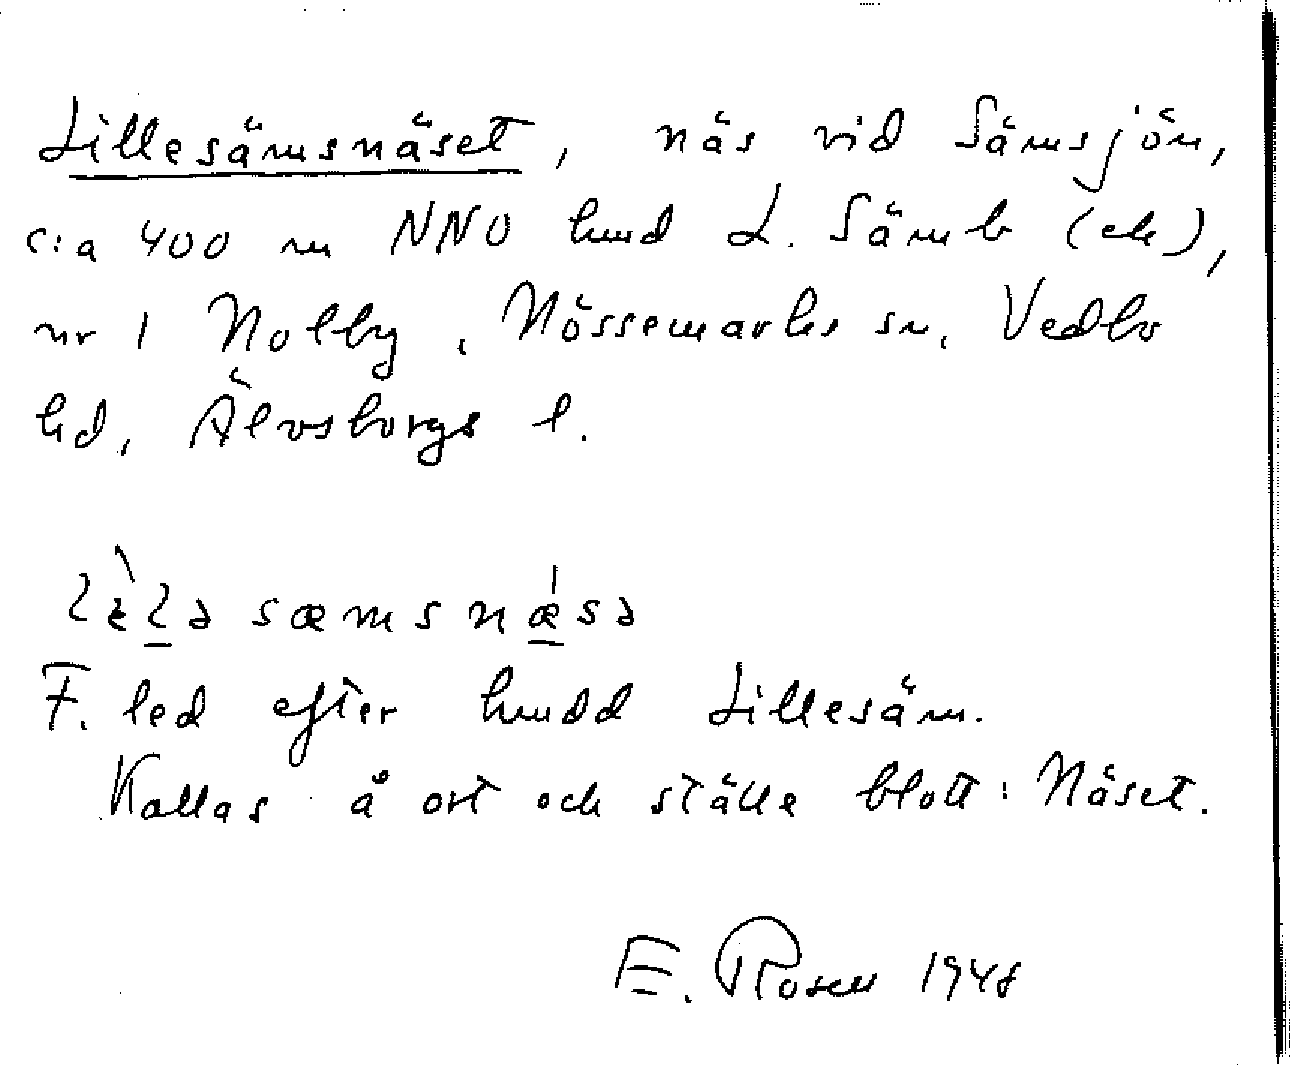 Lillesämsnäset, näs vid Sämsjön,
c:a 400 m NNO hmd L. Säm b (ek),
nr 1 Nolby, Nössemarks sn, Vedbo
hd, Älvsborgs l.
lèlə sæmsnæ̀sə
F. led efter hmdd Lillesäm.
Kallas å ort och ställe blott: Näset.
E. Rosen 1948